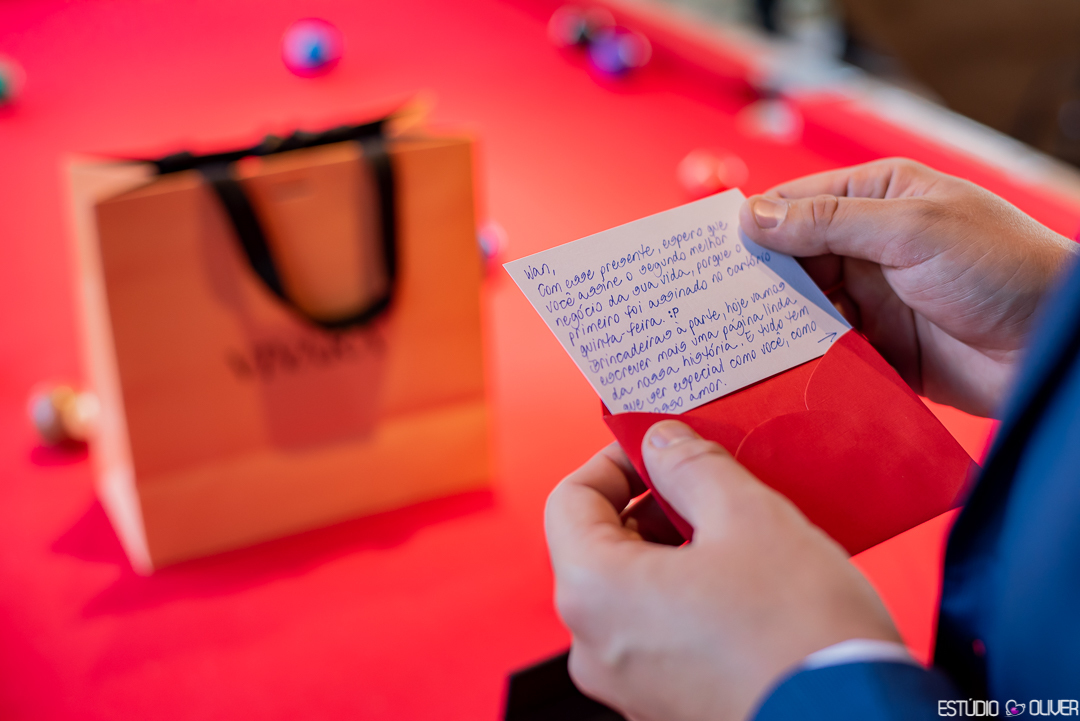 Wan,
Com esse presente, espero que
você assine o segundo melhor
negócio da sua vida, porque o
primeiro foi assinado no cartório
quinta-feira. :P
Brincadeiras à parte, hoje vamos
escrever mais uma página linda
da nossa história. E tudo tem
que ser especial como você, como
nosso amor.
ESTÚDIO OLIVER